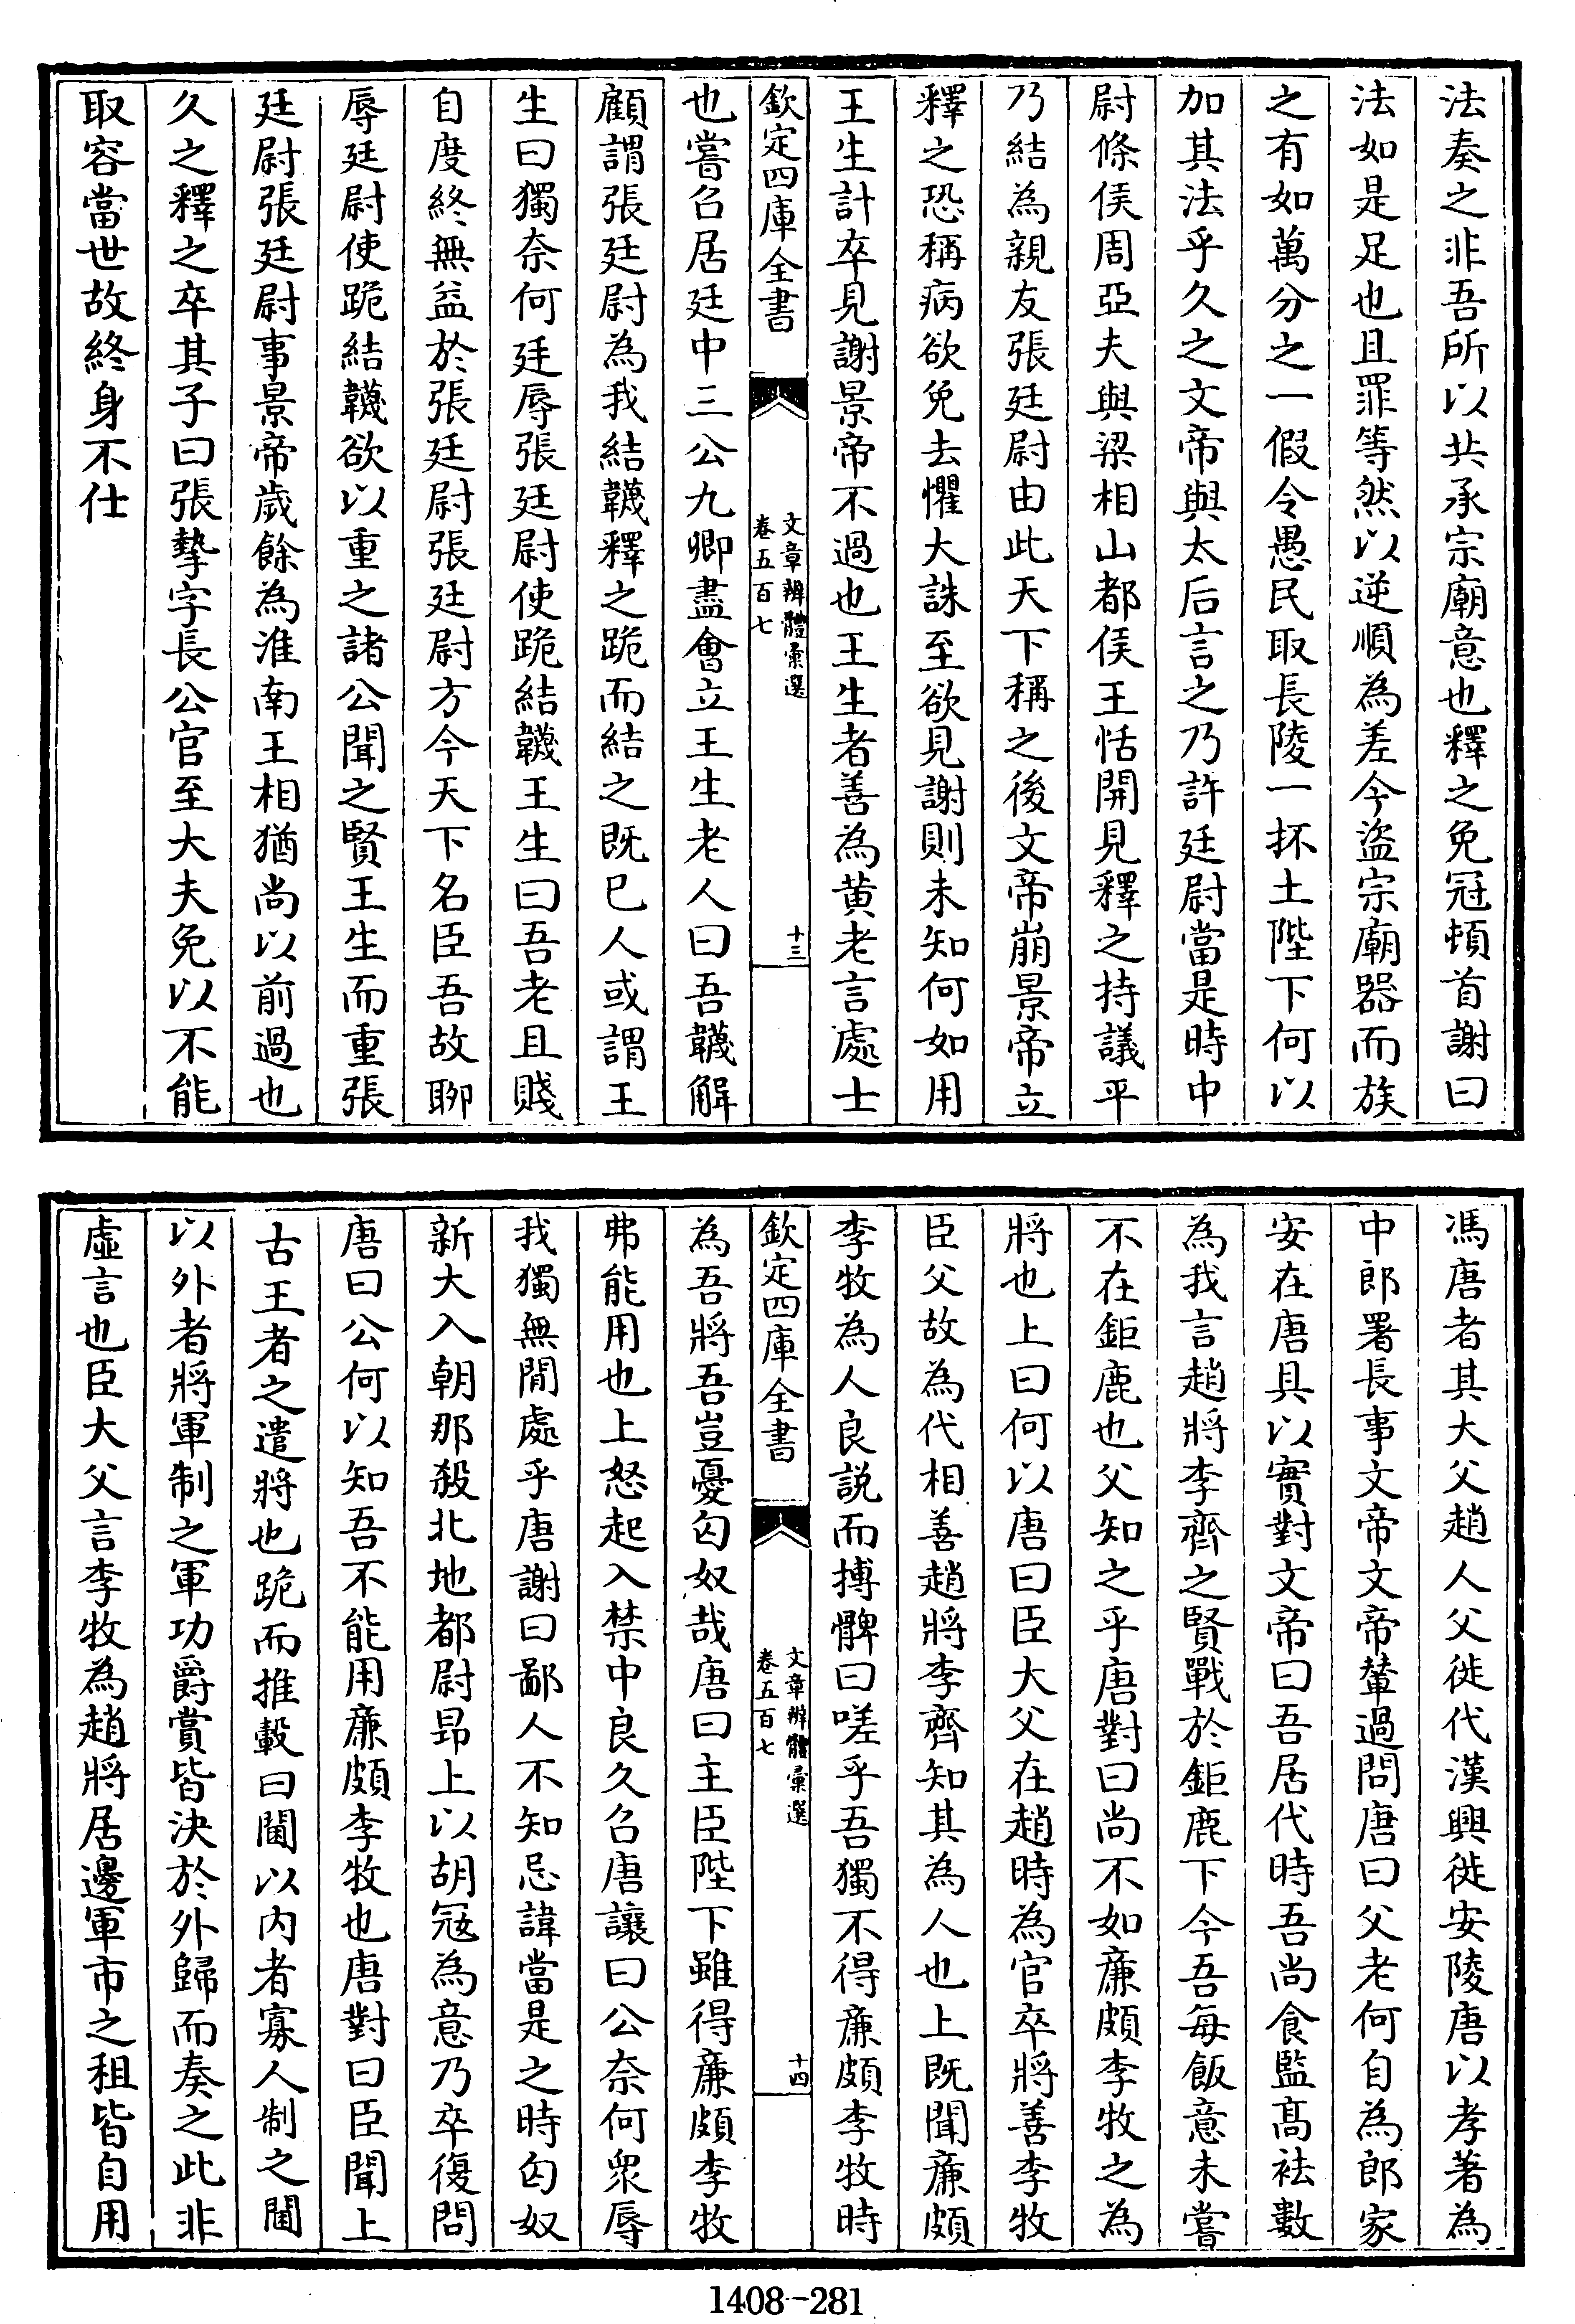 法奏之非吾所以共承宗廟意也釋之免冠頓首謝曰
法如是足也且罪等然以逆順為差今盜宗廟器而族
之有如萬分之一假令愚民取長陵一抔土陛下何以
加其法乎久之文帝與太后言之乃許廷尉當是時中
尉條侯周亞夫與梁相山都侯王恬開見釋之持議平
乃結為親友張廷尉由此天下稱之後文帝崩景帝立
釋之恐稱病欲免去懼大誅至欲見謝則未知何如用
王生計卒見謝景帝不過也王生者善為黄老言處士
欽定四庫全書
文章辨體彙選
卷五百七
十三
也嘗召居廷中三公九卿盡會立王生老人曰吾韈解
顧謂張廷尉為我結韈釋之跪而結之既已人或謂王
生曰獨奈何廷辱張廷尉使跪結韈王生曰吾老且賤
自度終無益於張廷尉張廷尉方今天下名臣吾故聊
辱廷尉使跪結韈欲以重之諸公聞之賢王生而重張
廷尉張廷尉事景帝歲餘為淮南王相猶尚以前過也
久之釋之卒其子曰張摯字長公官至大夫免以不能
取容當世故終身不仕
馮唐者其大父趙人父徙代漢興徙安陵唐以孝著為
中郎署長事文帝文帝輦過問唐曰父老何自為郎家
安在唐具以實對文帝曰吾居代時吾尚食監髙袪數
為我言趙將李齊之賢戰於鉅鹿下今吾每飯意未嘗
不在鉅鹿也父知之乎唐對曰尚不如廉頗李牧之為
將也上曰何以唐曰臣大父在趙時為官卒將善李牧
臣父故為代相善趙將李齊知其為人也上既聞廉頗
李牧為人良説而搏髀曰嗟乎吾獨不得廉頗李牧時
欽定四庫全書
文章辨體彙選
卷五百七
十四
為吾將吾豈憂匈奴哉唐曰主臣陛下雖得廉頗李牧
弗能用也上怒起入禁中良久召唐讓曰公奈何衆辱
我獨無閒處乎唐謝曰鄙人不知忌諱當是之時匈奴
新大入朝那殺北地都尉昂上以胡冦為意乃卒復問
唐曰公何以知吾不能用廉頗李牧也唐對曰臣聞上
古王者之遣將也跪而推轂曰閫以内者寡人制之閫
以外者將軍制之軍功爵賞皆決於外歸而奏之此非
虛言也臣大父言李牧為趙將居邊軍市之租皆自用
1408-281